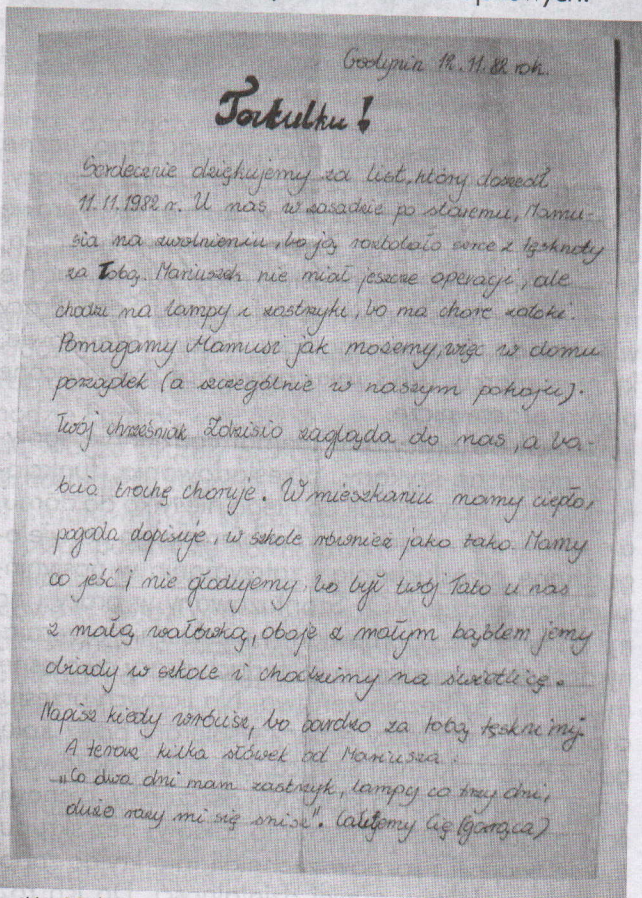 Gostynin 12.11.82 rok.
Tatulku!
Serdecznie dziękujemy za list, który doszedł
11.11.1982 r. U nas w zasadzie po staremu, Mamu-
sia na zwolnieniu, bo ją rozbolało serce z tęsknoty
za Tobą. Mariuszek nie miał jeszcze operacji, ale
chodzi na lampy i zastrzyki, bo ma chore zatoki.
Pomagamy Mamusi jak możemy, więc w domu
porządek (a szczególnie w naszym pokoju).
Twój chrześniak Zdzisio zagląda do nas, a ba-
bcia trochę choruje. W mieszkaniu mamy ciepło,
pogoda dopisuje, w szkole również jako tako. Mamy
co jeść i nie głodujemy, bo był twój Tato u nas
z małą wałówką, oboje z małym bąblem jemy
obiady w szkole i chodzimy na świetlicę.
Napisz kiedy wrócisz, bo bardzo za tobą tęsknimy.
A teraz kilka słówek od Mariusza.
"Co dwa dni mam zastrzyk, lampy co trzy dni,
dużo razy mi się śnisz". Całujemy Cię (gorąco)